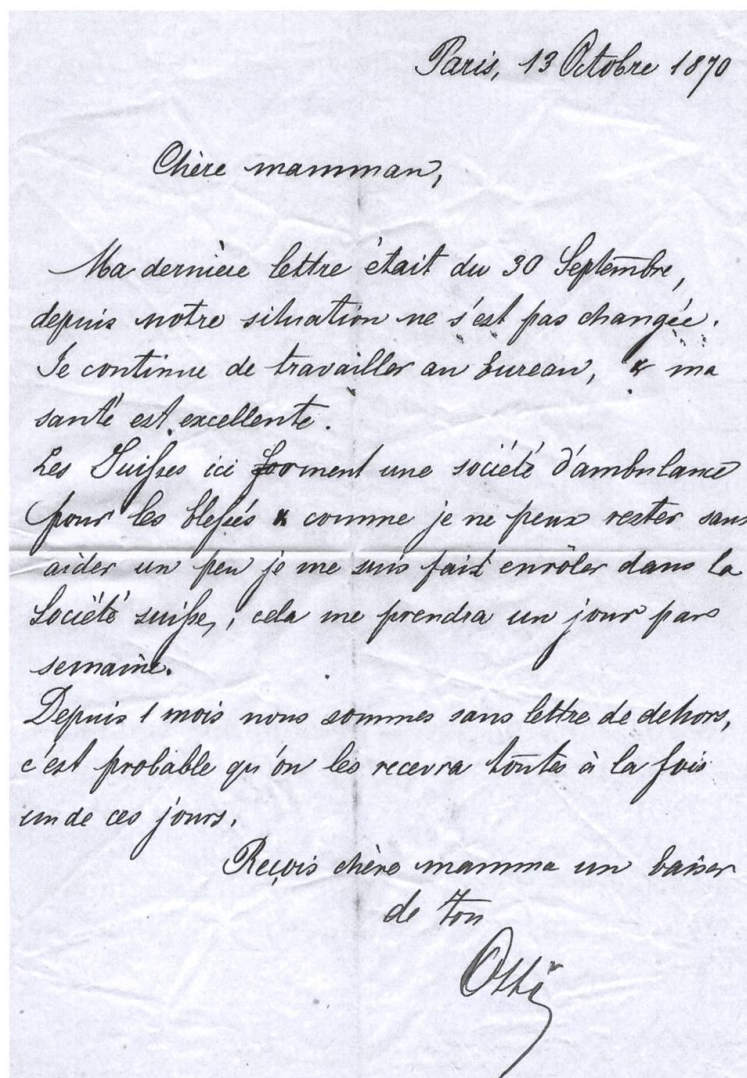 Paris, 13 Octobre 1870
Chère mamman,
Ma dernière lettre était du 30 Septembre,
depuis notre situation ne s'est pas changée.
Je continue de travailler au bureau, & ma
santé est excellente.
Les Suisses ici forment une société d'ambulance
pour les blessés & comme je ne peux rester sans
aider un peu je me suis fait enrôler dans la
Société suisse, cela me prendra un jour par
semaine.
Depuis 1 mois nous sommes sans lettre de dehors,
c'est probable qu'on les recevra toutes à la fois
un de ces jours.
Reçois chère mamma un baiser
de ton